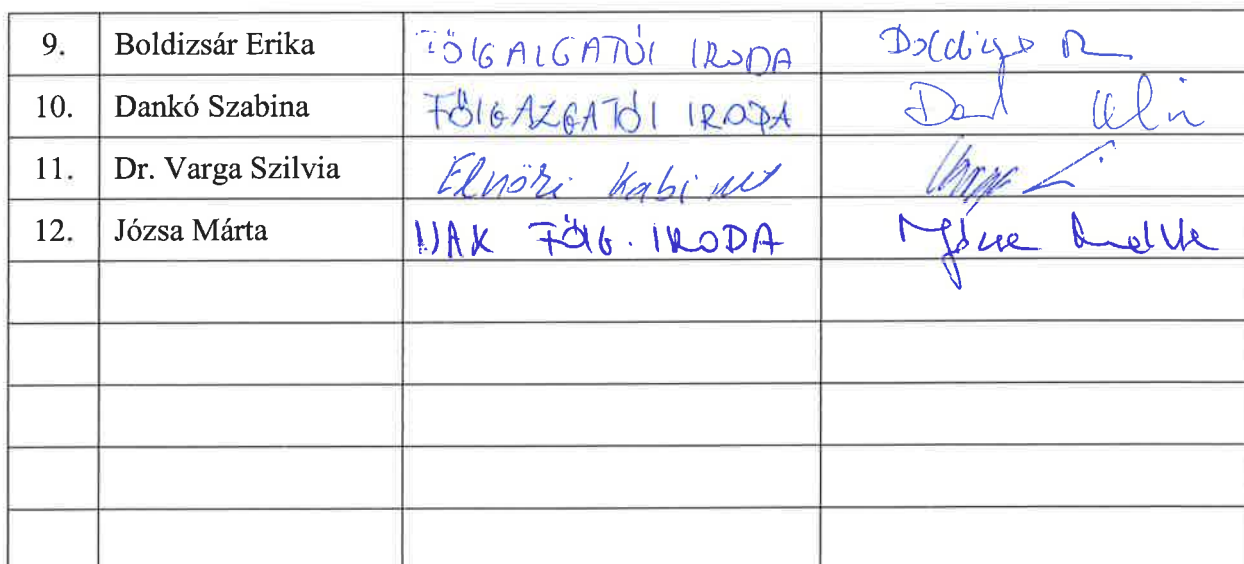 9. Boldizsár Erika FŐIGAIGATÓI IRODA
10. Dankó Szabina FŐIGAZGATÓI IRODA
11. Dr. Varga Szilvia Elnöki Kabinet
12. Józsa Márta NAK FŐIG. IRODA